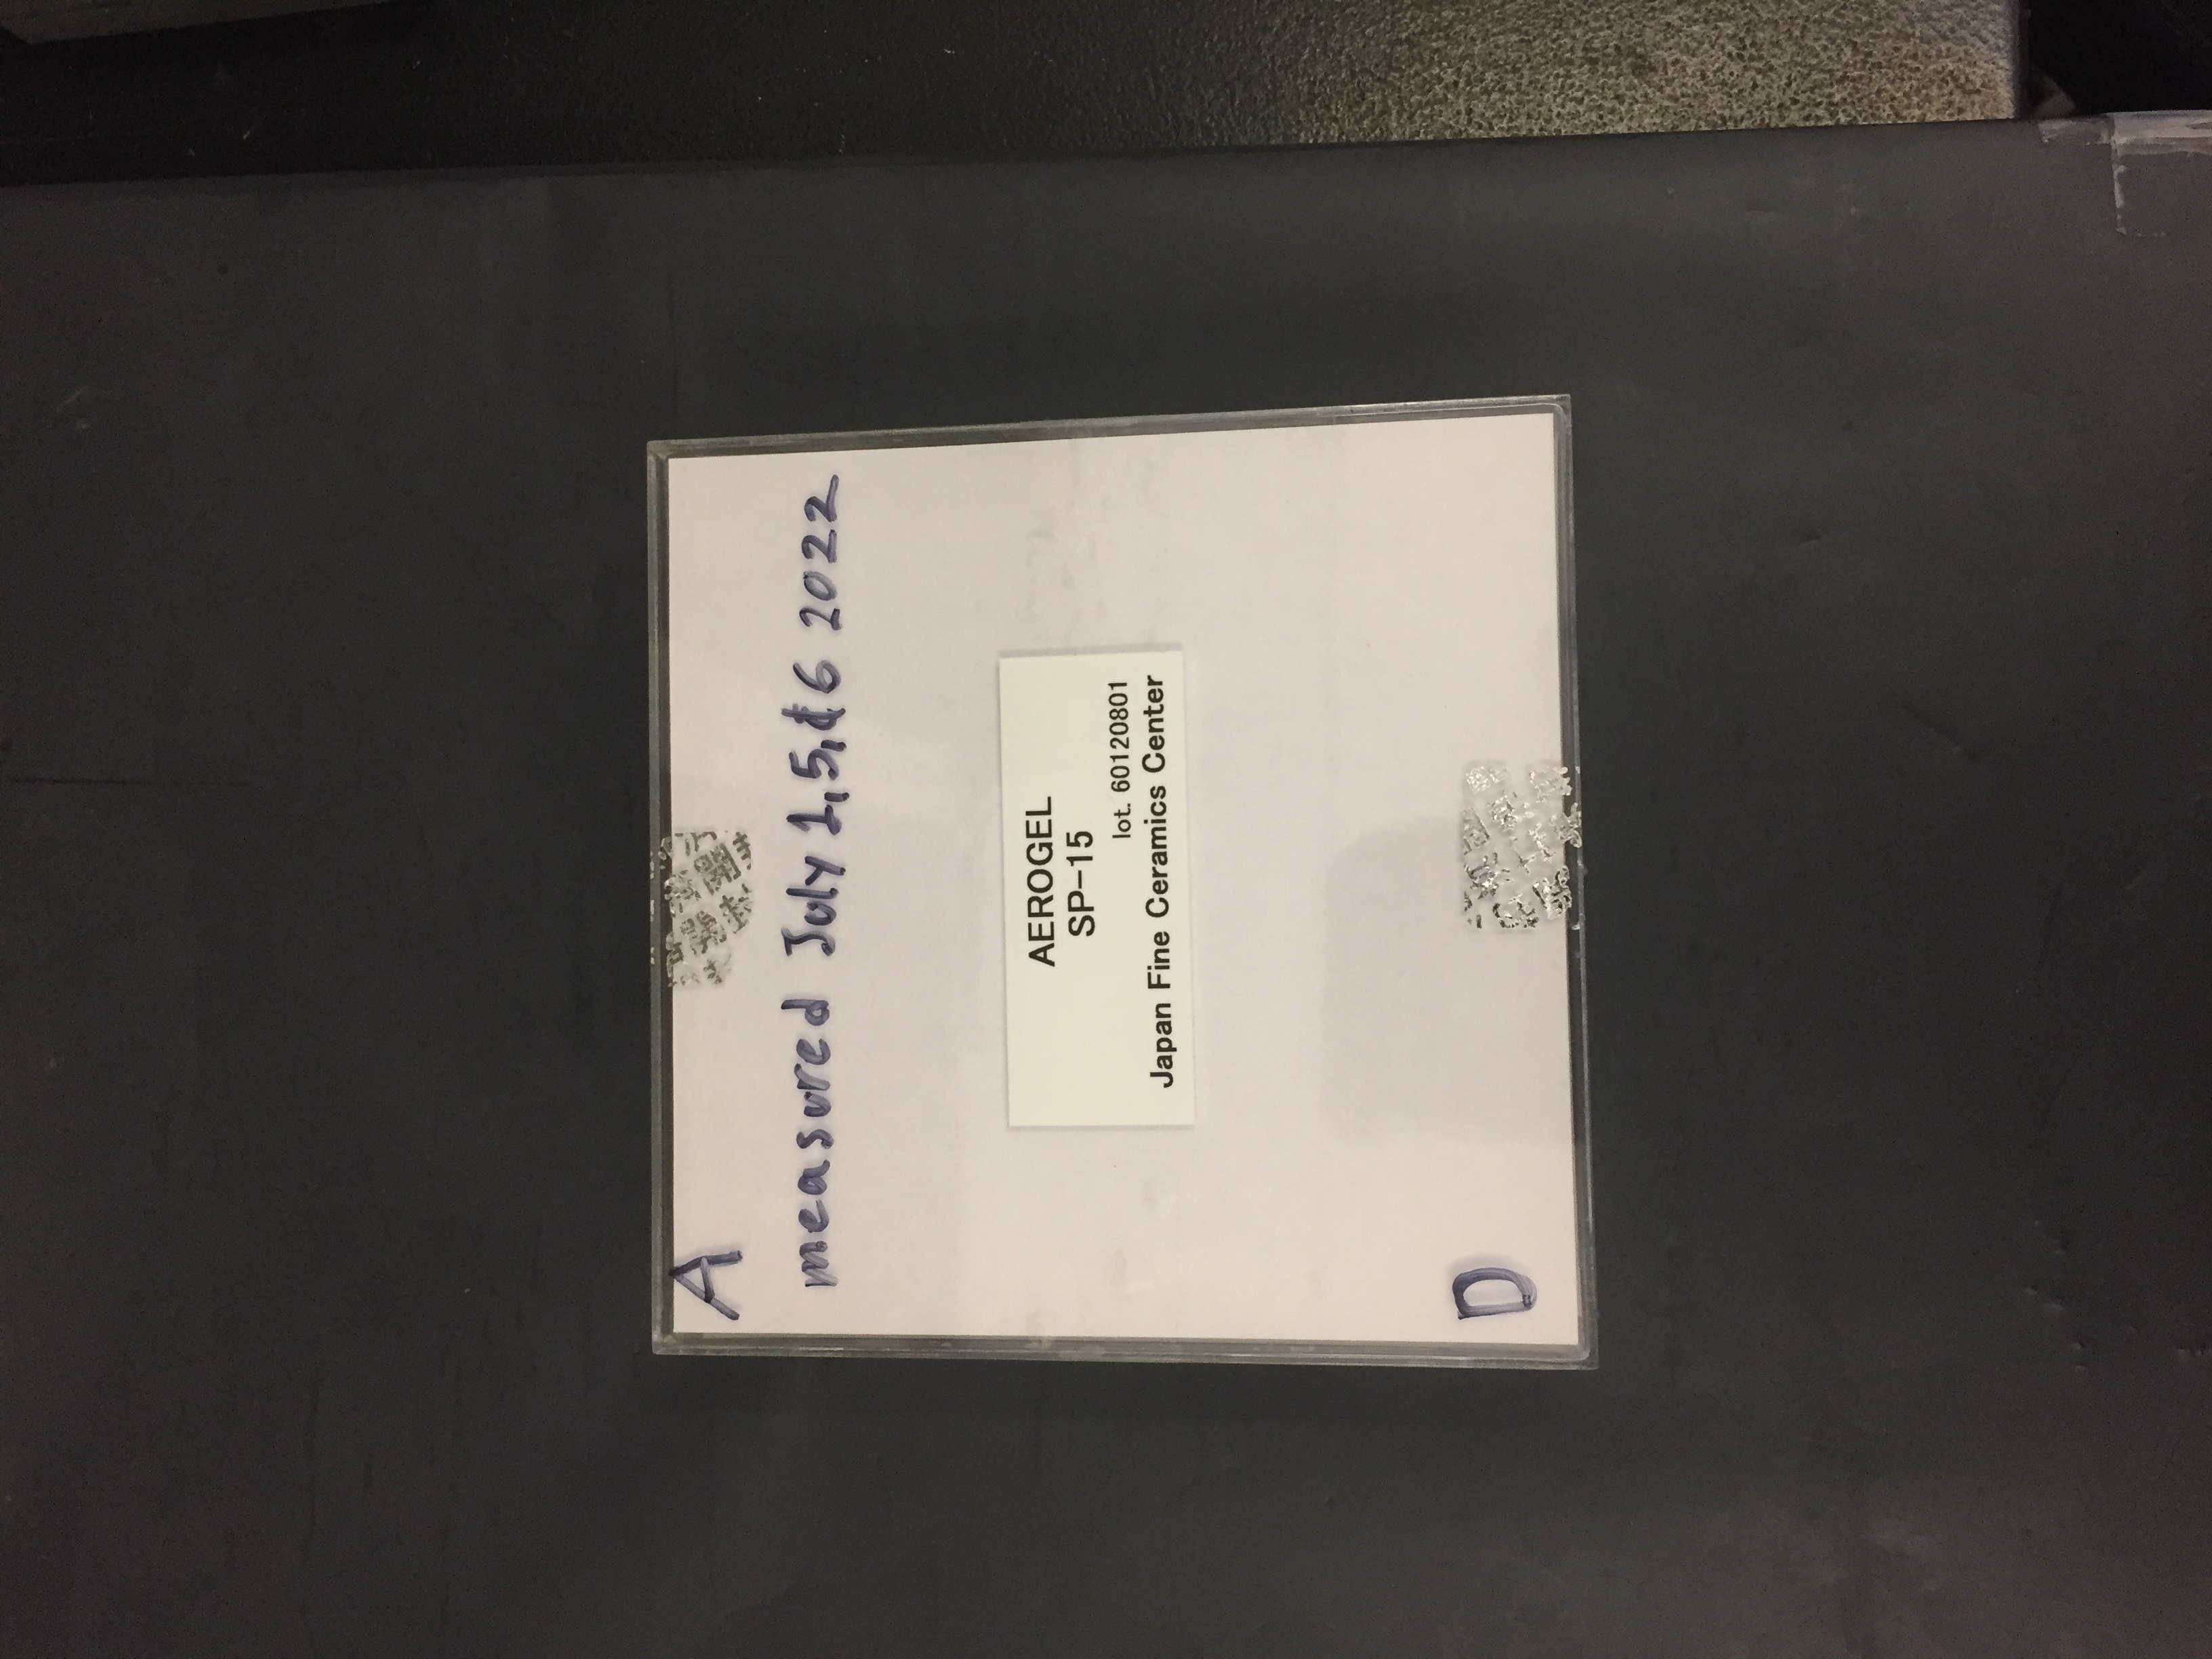 A
measured July 1, 5, & 6 2022
AEROGEL
SP-15
lot. 60120801
Japan Fine Ceramics Center
D